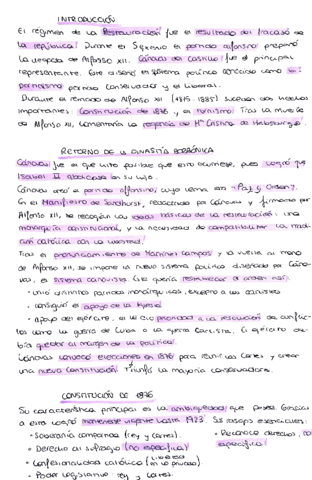 INTRODUCCIÓN
El régimen de la Restauración fue el resultado del fracaso de
la república. Durante el Sexenio el partido alfonsino preparó
la llegada de Alfonso XII. Cánovas del Castillo fue el principal
representante. Este diseñó el sistema político conocido como bi-
partidismo partido Conservador y el Liberal.
Durante el reinado de Alfonso XII (1875-1885) suceden dos hechos
importantes: Constitución de 1876 y el turnismo. Tras la muerte
de Alfonso XII, comenzaría la regencia de Mª Cristina de Habsburgo.
RETORNO DE LA DINASTÍA BORBÓNICA
Cánovas fue el que hizo posible que esto ocurriese, pues logró que
Isabel II abdicase en su hijo.
Cánovas creó el partido alfonsino, cuyo lema era "Paz y Orden".
En el Manifiesto de Sandhurst, redactado por Cánovas y firmado por
Alfonso XII, se recogían las ideas básicas de la restauración: una
monarquía constitucional, y la necesidad de compatibilizar la tradi-
ción católica con la libertad.
Tras el pronunciamiento de Martínez Campos y la vuelta al trono
de Alfonso XII, se impone un nuevo sistema político diseñado por Cáno-
vas, el sistema canovista. Este quería restablecer el orden así:
· unió distintos partidos monárquicos, excepto a los carlistas
· consiguió el apoyo de la Iglesia
· apoyo del ejército, se le dio prioridad a la resolución de conflic-
tos como la guerra de Cuba o la guerra Carlista. El ejército de-
bía quedar al margen de la política
Cánovas convocó elecciones en 1876 para reunir las Cortes y crear
una nueva Constitución. Triunfó la mayoría conservadora.
CONSTITUCIÓN DE 1876
Su característica principal es la ambigüedad que posee. Gracias
a esto logró mantenerse vigente hasta 1923. Sus rasgos esenciales:
· Soberanía compartida (rey y Cortes)
· Reconoce derechos, no
específica
· Derecho al sufragio (no especifica)
· Confesionalidad católica (libertad en lo privado)
· Poder legislativo: rey y Cortes